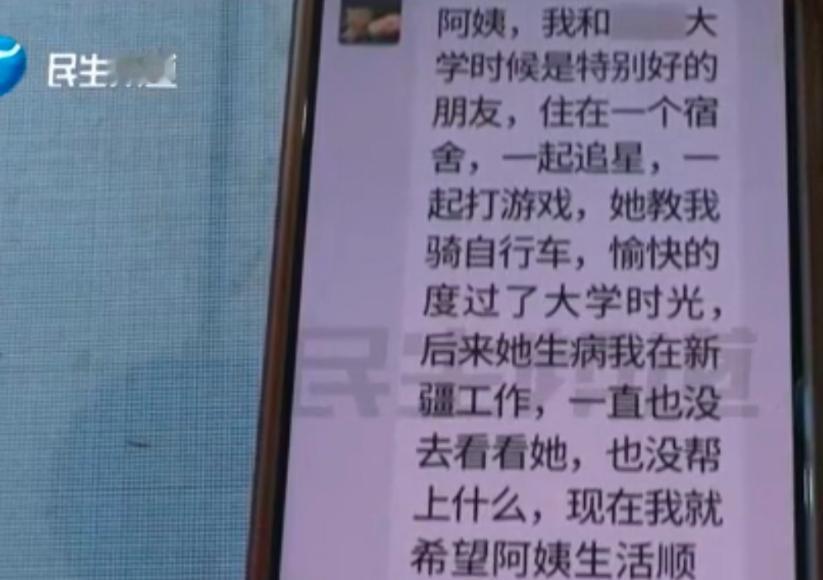 民生
阿姨，我和 大
学时候是特别好的
朋友，住在一个宿
舍，一起追星，一
起打游戏，她教我
骑自行车，愉快的
度过了大学时光，
后来她生病我在新
疆工作，一直也没
去看看她，也没帮
上什么，现在我就
希望阿姨生活顺